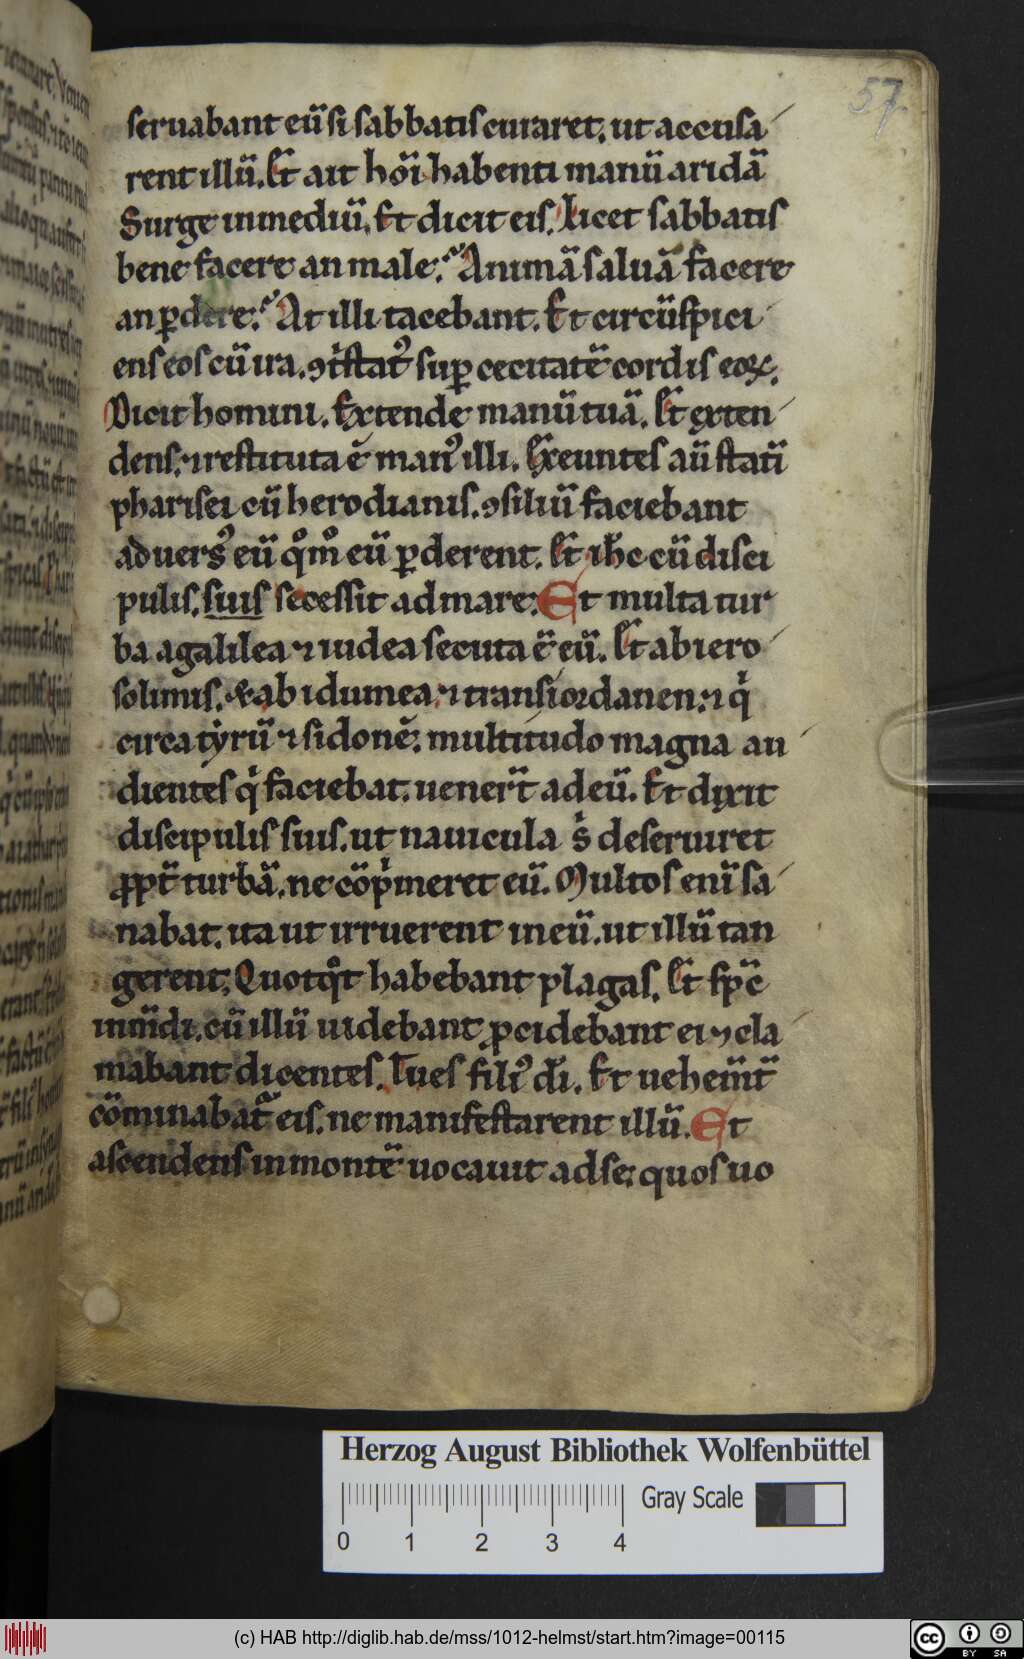 57
seruabant eū si sabbatis curaret. ut accusa
rent illū. Et ait hōi habenti manū aridā
Surge in mediū. Et dicit eis. Licet sabbatis
bene facere an male. Animā saluā facere
an ꝑdere. At illi tacebant. Et circūspici
ens eos cū ira. ꝯtͥstatꝰ suꝑ cecitatē cordis eoꝝ.
Dicit homini. Extende manū tuā. Et exten
dens. ⁊ restituta ē manꝰ illi. Exeuntes aū statī
pharisei cū herodianis. ꝯsiliū faciebant
aduersꝰ eū qͦmͦ eū ꝑderent. Et ih̄c cū disci
pulis. suis secessit ad mare. Et multa tur
ba a galilea ⁊ iudea secuta ē eū. Et ab iero
solimis. & ab idumea. ⁊ transiordanen. ⁊ qͥ
circa tyrū ⁊ sidonē. multitudo magna au
dientes qͥ faciebat. uenert̄ ad eū. Et dixit
discipulis suis. ut nauicula sͥ deseruiret
ꝓpt̄ turbā. ne cōpͥmeret eū. Multos enī sa
nabat. ita ut irruerent in eū. ut illū tan
gerent. Quotqͦt habebant plagas. Et sp̄c
inmūdi. cū illū uidebant ꝓcidebant ei ⁊ cla
mabant dicentes. Tu es filiꝰ di̅. Et uehem̄t̄
cōminabat̄ eis. ne manifestarent illū. Et
ascendens in montē uocauit ad se quos uo
Herzog August Bibliothek Wolfenbüttel
Gray Scale
0 1 2 3 4
(c) HAB http://diglib.hab.de/mss/1012-helmst/start.htm?image=00115
cc BY SA